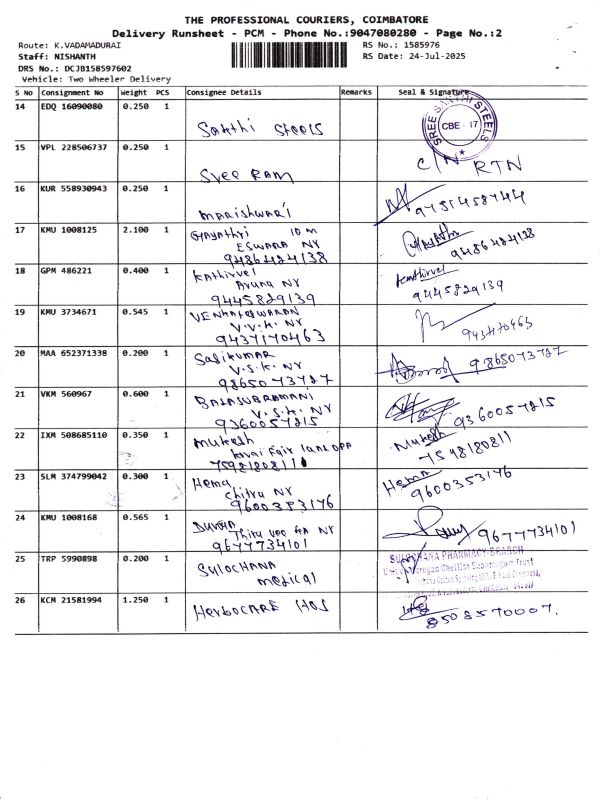 THE PROFESSIONAL COURIERS, COIMBATORE
Delivery Runsheet - PCM - Phone No.:9047080280 - Page No.:2
Route: K.VADAMADURAI RS No.: 1585976
Staff: NISHANTH RS Date: 24-Jul-2025
DRS No.: DCJB158597602
Vehicle: Two Wheeler Delivery
S No Consignment No Weight PCS Consignee Details Remarks Seal & Signature
14 EDQ 16090080 0.250 1
Sakthi Steels
SREE SAKTHI STEELS
CBE - 17
15 VPL 228506737 0.250 1
Sree Ram
C/N RTN
16 KUR 558930943 0.250 1
Marishwari
17 KMU 1008125 2.100 1 Gayathri 10 m
ESWARA NY
9486424138
Gayathri
9486424138
18 GPM 486221 0.400 1 Kathirvel
Aruna NY
9445829139
Kathirvel
9445829139
19 KMU 3734671 0.545 1 VENKATESWARAN
V.V.K. NY
9437170463
20 MAA 652371338 0.200 1 Sasikumar
V.S.K. NY
9865073727
9865073727
21 VKM 560967 0.600 1 BALASUBRAMANI
V.S.K. NY
9360057215
9360057215
22 IXM 508685110 0.350 1 Mukesh
7598180811
Mukesh
7548180811
23 SLM 374799042 0.300 1 Hema
Chitra NY
9600353176
Hema
9600353176
24 KMU 1008168 0.565 1 DURGA
NY
9677734101
9677734101
25 TRP 5990898 0.200 1 SULOCHANA
medical
SULOCHANA PHARMACY BRANCH
26 KCM 21581994 1.250 1 HerboCARE HOS
8508570007.